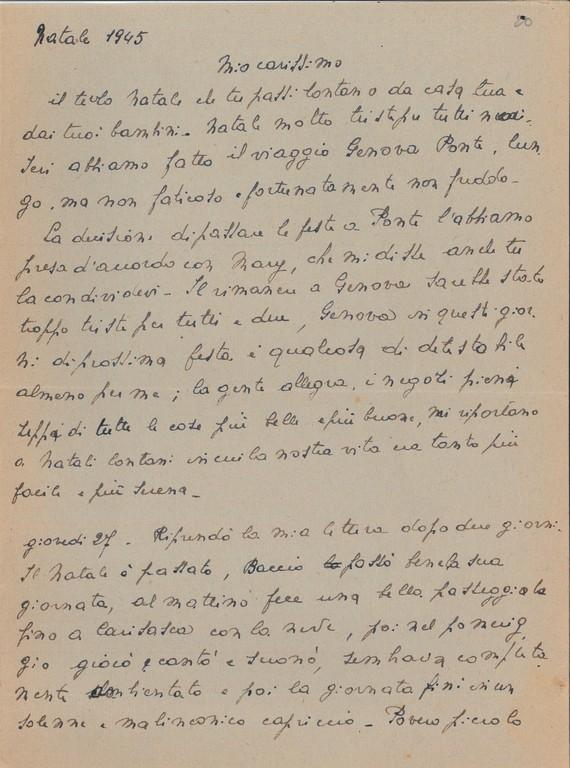 20
Natale 1945
Mio carissimo
il terzo Natale che tu passi lontano da casa tua e
dai tuoi bambini. Natale molto triste per tutti noi.
Ieri abbiamo fatto il viaggio Genova Ponte, lun
go, ma non faticoso e fortunatamente non freddo -
La decisione di passare le feste a Ponte l'abbiamo
presa d'accordo con Mary, che mi disse anche tu
la condividevi - Il rimanere a Genova sarebbe stato
troppo triste per tutti e due, Genova in questi gior
ni di prossima festa è qualcosa di detestabile
almeno per me; la gente allegra, i negozi pieni
zeppi di tutte le cose più belle e più buone, mi riportano
a Natali lontani in cui la nostra vita era tanto più
facile e più serena -
giovedì 27 - Riprendo la mia lettera dopo due giorni.
Il Natale è passato, Baccio passò bene la sua
giornata, al mattino fece una bella passeggiata
fino a Carisasca con la neve, poi nel pomerig
gio giocò e cantò e suonò, sembrava completa
mente ambientato e poi la giornata finì in un
solenne e malinconico capriccio - Povero piccolo